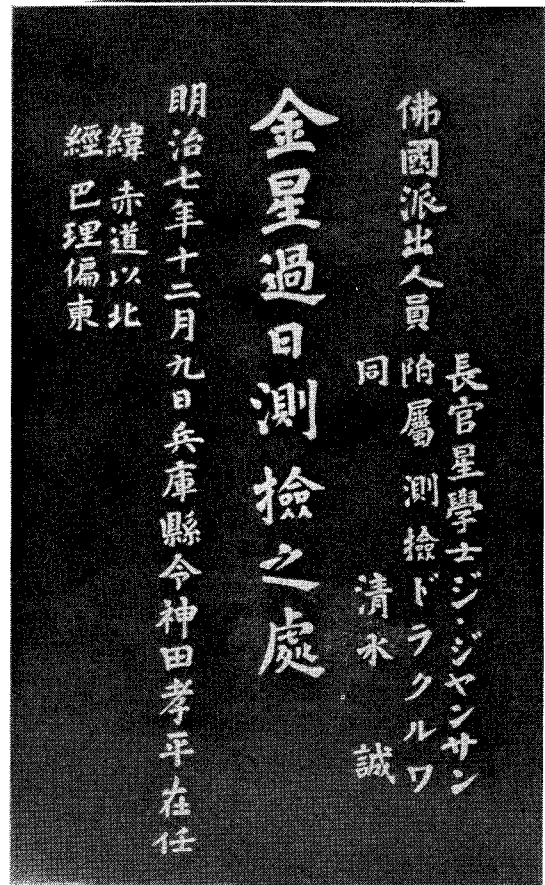 佛國派出人員
長官星學士ジ・ジヤンサン
附屬 測撿ドラクルワ
同 清水 誠
金星過日測撿之處
明治七年十二月九日兵庫縣令神田孝平在任
緯 赤道以北
經 巴理偏東